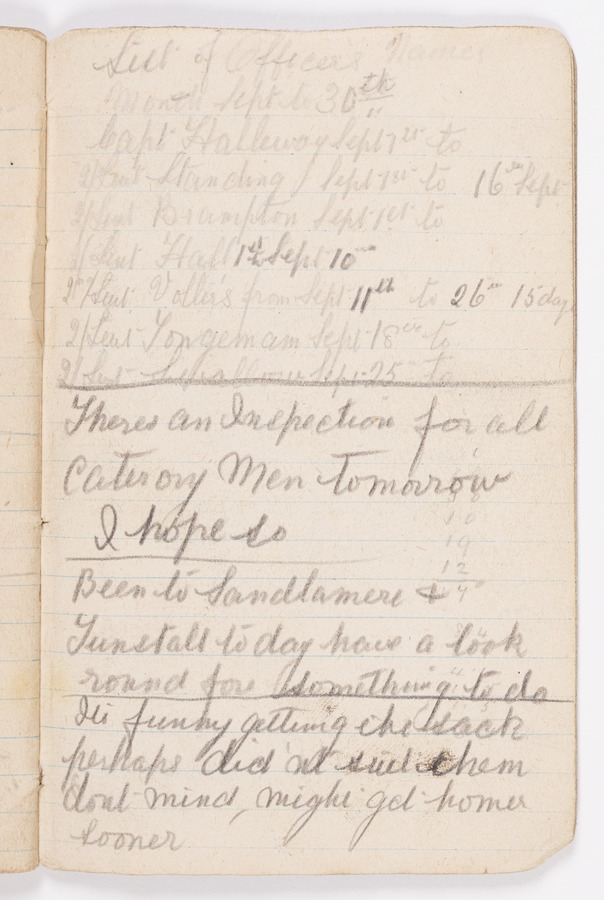 List of Officers Names
Month Sept to 30th
Capt Halleway Sept 1st to
2/Leut Standing Sept 1st to 16th Sept
2/Leut Brampton Sept 1st to
1/Leut Hall 1st Sept 10th
2nd/Leut Vollers from Sept 11th to 26th 15 days
2/Leut Tongemam Sept 18th to
2/Leut Sept 25th to
Theres an Inspection for all
Caterory Men tomorrow
I hope so
10
19
12
Been to Sandlamere &
Tunstall to day have a look
round for something to do
Its funny getting the sack
perhaps did nt suit them
dont mind, might get home
sooner